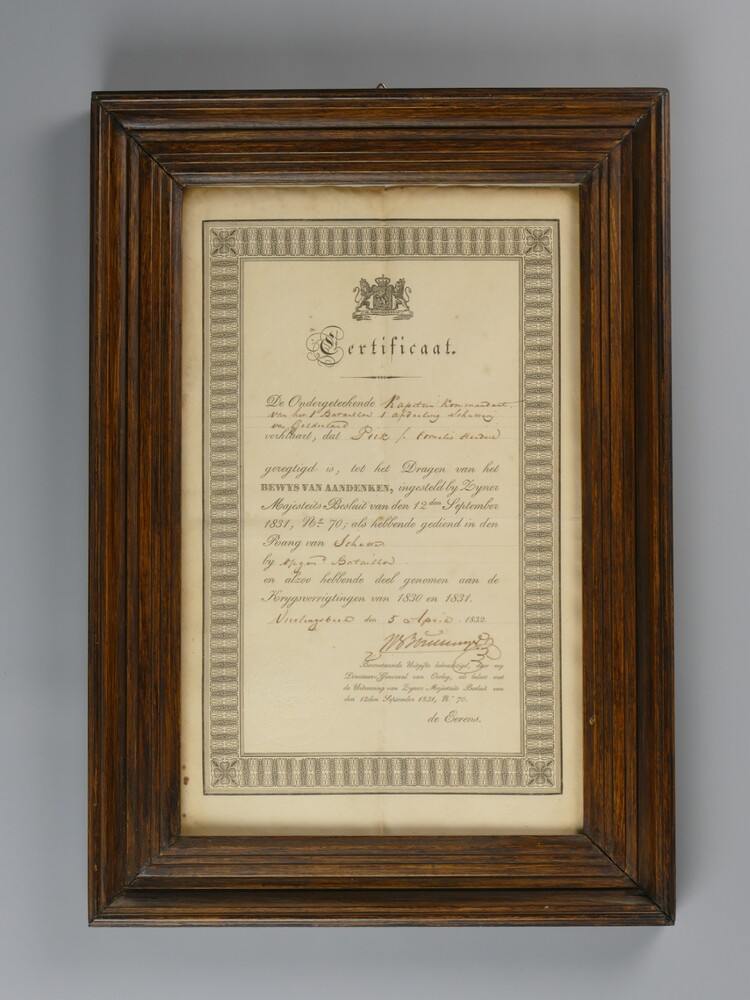 Certificaat.
De Ondergeteekende Kapitein Kommandant
van het 1e Bataillon 1 afdeeling Schutterij
van Gelderland
verklaart, dat Piek / Cornelis
geregtigd is, tot het Dragen van het
BEWYS VAN AANDENKEN, ingesteld by Zyner
Majesteits Besluit van den 12den September
1831, No. 70; als hebbende gediend in den
Rang van
by Bataillon
en alzoo hebbende deel genomen aan de
Krygsverrigtingen van 1830 en 1831.
den 5 April 1832.
Bovenstaande Uitgifte bekrachtigd, door my
Directeur-Generaal van Oorlog, als belast met
de Uitvoering van Zyner Majesteits Besluit van
den 12den September 1831, No. 70.
de Eerens.